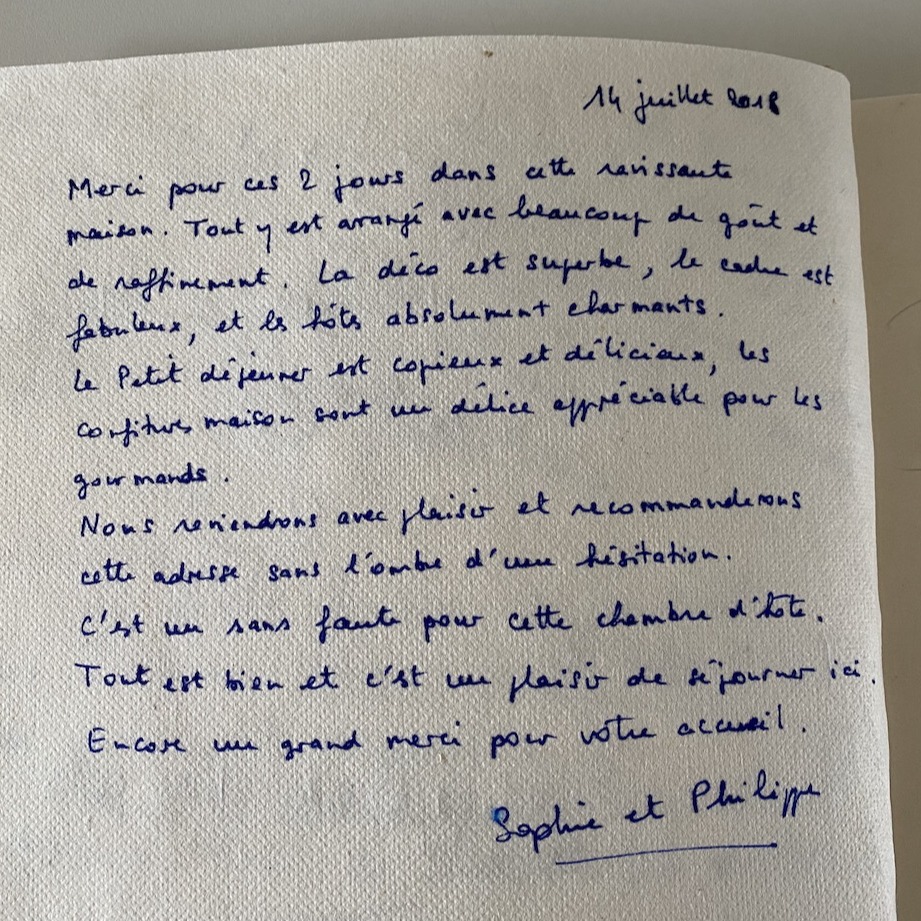 14 juillet 2018
Merci pour ces 2 jours dans cette ravissante
maison. Tout y est arrangé avec beaucoup de goût et
de raffinement. La déco est superbe, le cadre est
fabuleux, et les hôtes absolument charmants.
Le Petit déjeuner est copieux et délicieux, les
confitures maison sont un délice appréciable pour les
gourmands.
Nous reviendrons avec plaisir et recommanderons
cette adresse sans l'ombre d'une hésitation.
C'est un sans faute pour cette chambre d'hôte.
Tout est bien et c'est un plaisir de séjourner ici.
Encore un grand merci pour votre accueil.
Sophie et Philippe